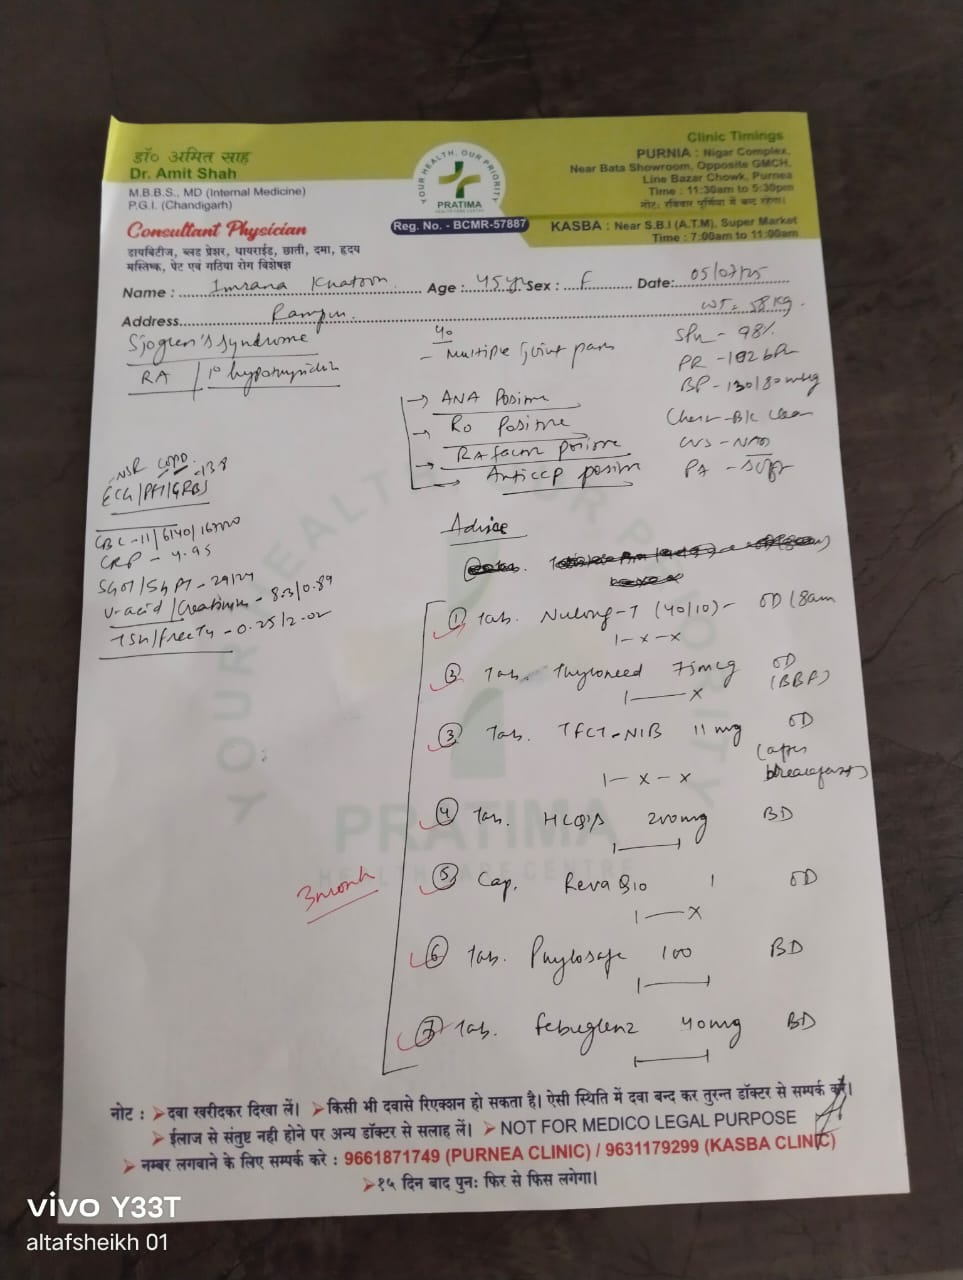 डॉ० अमित साह
Dr. Amit Shah
M.B.B.S., MD (Internal Medicine)
P.G.I. (Chandigarh)
Consultant Physician
डायबिटीज, ब्लड प्रेशर, थायराईड, छाती, दमा, हृदय
मस्तिष्क, पेट एवं गठिया रोग विशेषज्ञ
YOUR HEALTH, OUR PRIORITY
PRATIMA
HEALTH CARE CENTRE
Reg. No. - BCMR-57887
Clinic Timings
PURNIA : Nigar Complex,
Near Bata Showroom, Opposite GMCH,
Line Bazar Chowk, Purnea
Time : 11:30am to 5:30pm
नोट: रविवार पूर्णिया में बन्द रहेगा।
KASBA : Near S.B.I (A.T.M), Super Market
Time : 7:00am to 11:00am
Name : Imrana Khatoon Age : 45 yr Sex : F Date: 05/07/25
Address Rampur WT- 58 Kg.
Sjogren's syndrome
RA / 1° hypothyroidism
- Multiple joint pain
→ ANA Positive
→ Ro Positive
RA factor positive
→ Anti CCP positive
98%
PR -
BP - 130/80 mmHg
Chest - B/L clear
CVS - NAD
PA - Soft
NSR COPD 138
ECG/PFT/GRBS
CBC - 11/6140/
CRP - 4.95
SGOT/SGPT -
U-acid/Creatinine - 8.3/0.89
TSH/free T4 - 0.25/2.02
Advice
① Tab. Nulong-T (40/10) - OD (8am
1 - x - x
② Tab. Thyroneed 75mcg OD
(BBF)
1 — x
③ Tab. TFCT-NIB 11 mg OD
(after
breakfast)
1 - x - x
④ Tab. HCQS 200mg BD
⑤ Cap. Reva Q10 1 OD
1 — x
3 month
⑥ Tab. 100 BD
⑦ Tab. 40mg BD
नोट : ➤ दवा खरीदकर दिखा लें। ➤ किसी भी दवासे रिएक्शन हो सकता है। ऐसी स्थिति में दवा बन्द कर तुरन्त डॉक्टर से सम्पर्क करें।
➤ ईलाज से संतुष्ट नही होने पर अन्य डॉक्टर से सलाह लें। ➤ NOT FOR MEDICO LEGAL PURPOSE
➤ नम्बर लगवाने के लिए सम्पर्क करे : 9661871749 (PURNEA CLINIC) / 9631179299 (KASBA CLINIC)
➤ १५ दिन बाद पुनः फिर से फिस लगेगा।
vivo Y33T
altafsheikh 01